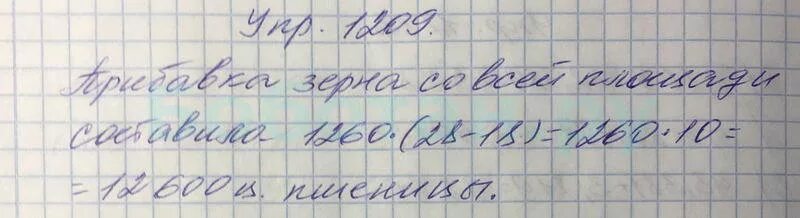 Упр. 1209.
Прибавка зерна со всей площади
составила 1260·(28-18)=1260·10=
=12600ц. пшеницы.